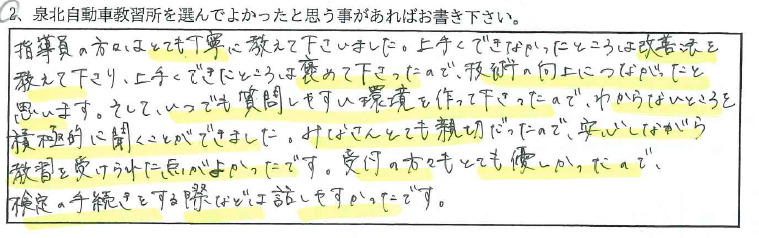 2、泉北自動車教習所を選んでよかったと思う事があればお書き下さい。
指導員の方々はとても丁寧に教えて下さいました。上手くできなかったところは改善法を
教えて下さり、上手くできたところは褒めて下さったので、技術の向上につながったと
思います。そして、いつでも質問しやすい環境を作って下さったので、わからないところを
積極的に聞くことができました。みなさんとても親切だったので、安心しながら
教習を受けられた点がよかったです。受付の方々もとても優しかったので、
検定の手続きをする際などは話しやすかったです。